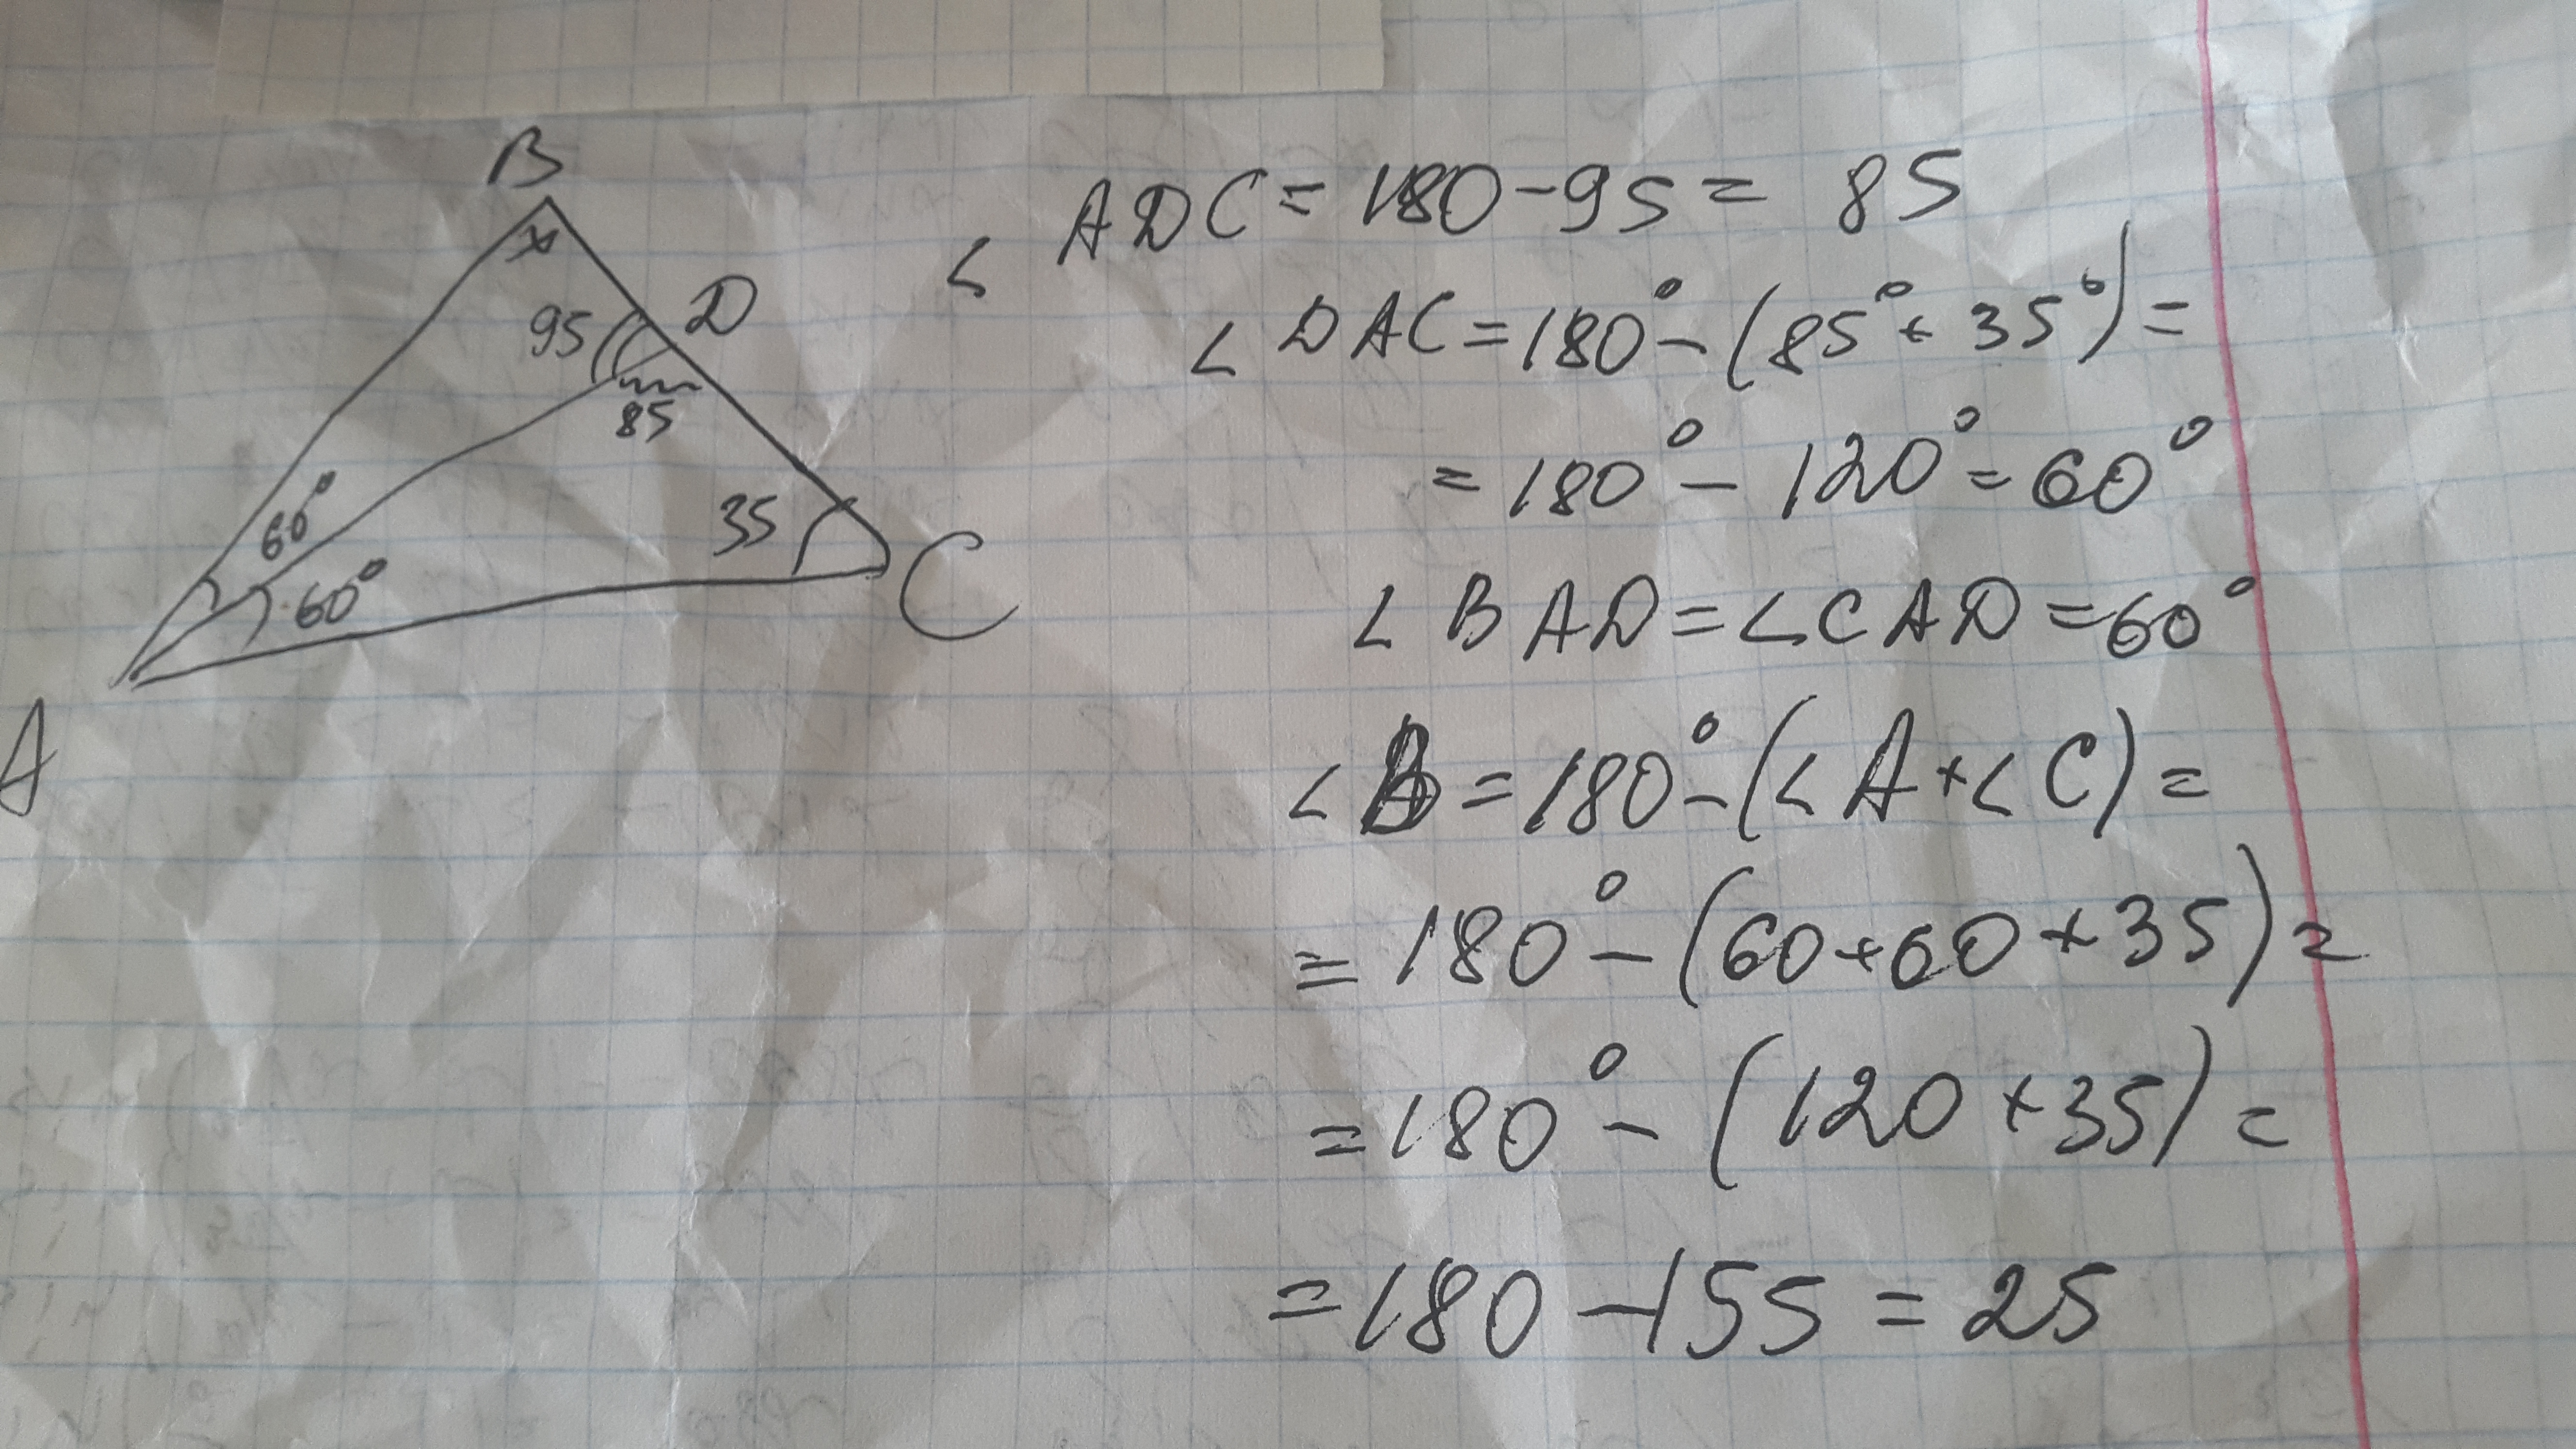 B
x
95
D
85
35
C
60°
60°
A
∠ ADC = 180 - 95 = 85
∠ DAC = 180° - (85° + 35°) =
= 180° - 120° = 60°
∠ BAD = ∠ CAD = 60°
∠ B = 180° - (∠ A + ∠ C) =
= 180° - (60 + 60 + 35) =
= 180° - (120 + 35) =
= 180 - 155 = 25